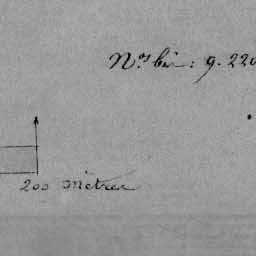 Nos bis: 9.220
200 mètres